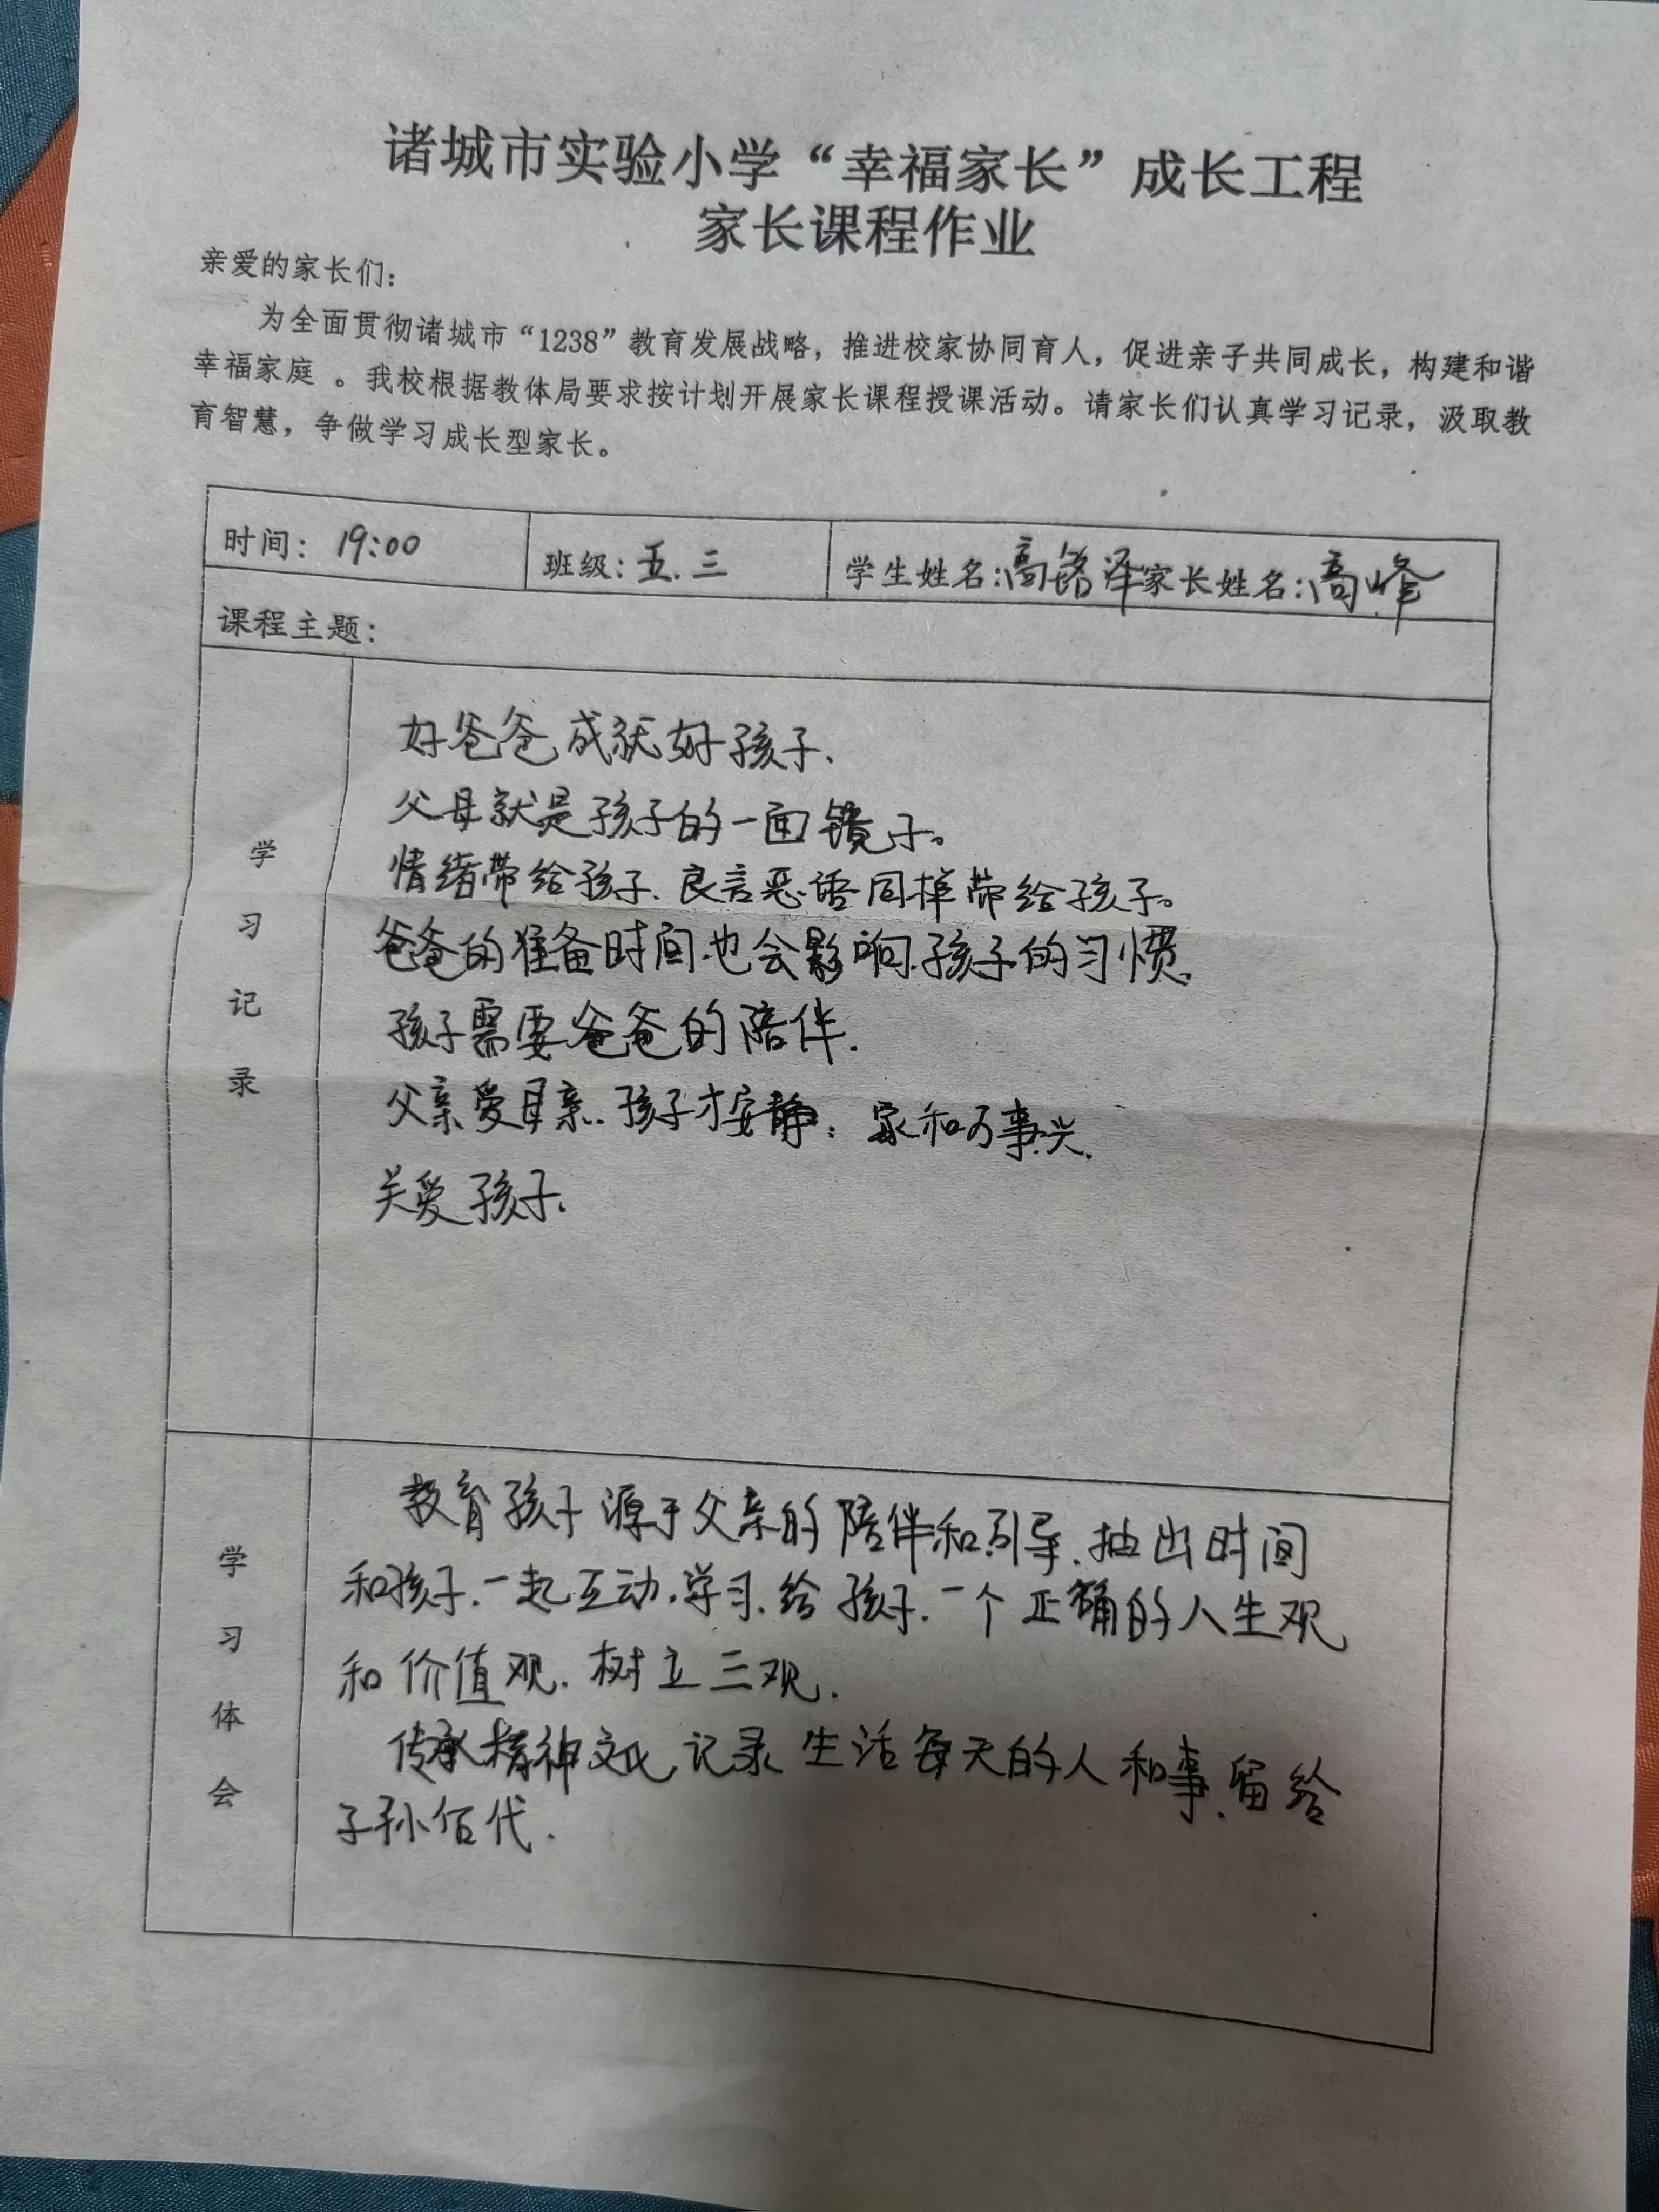 诸城市实验小学“幸福家长”成长工程
家长课程作业
亲爱的家长们：
为全面贯彻诸城市“1238”教育发展战略，推进校家协同育人，促进亲子共同成长，构建和谐
幸福家庭 。我校根据教体局要求按计划开展家长课程授课活动。请家长们认真学习记录，汲取教
育智慧，争做学习成长型家长。
时间： 19:00 班级：五.三 学生姓名：高铭泽 家长姓名：高峰
课程主题：
学习记录
好爸爸成就好孩子.
父母就是孩子的一面镜子。
情绪带给孩子.良言恶语同样带给孩子。
爸爸的准备时间也会影响孩子的习惯.
孩子需要爸爸的陪伴.
父亲爱母亲.孩子才安静：家和万事兴.
关爱孩子.
学习体会
教育孩子源于父亲的陪伴和引导.抽出时间
和孩子.一起互动.学习.给孩子.一个正确的人生观
和价值观.树立三观.
传承精神文化记录生活每天的人和事.留给
子孙佰代.